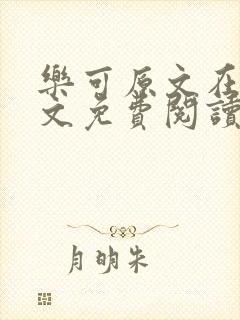 樂可原文在
文免費閱讀
月明朱